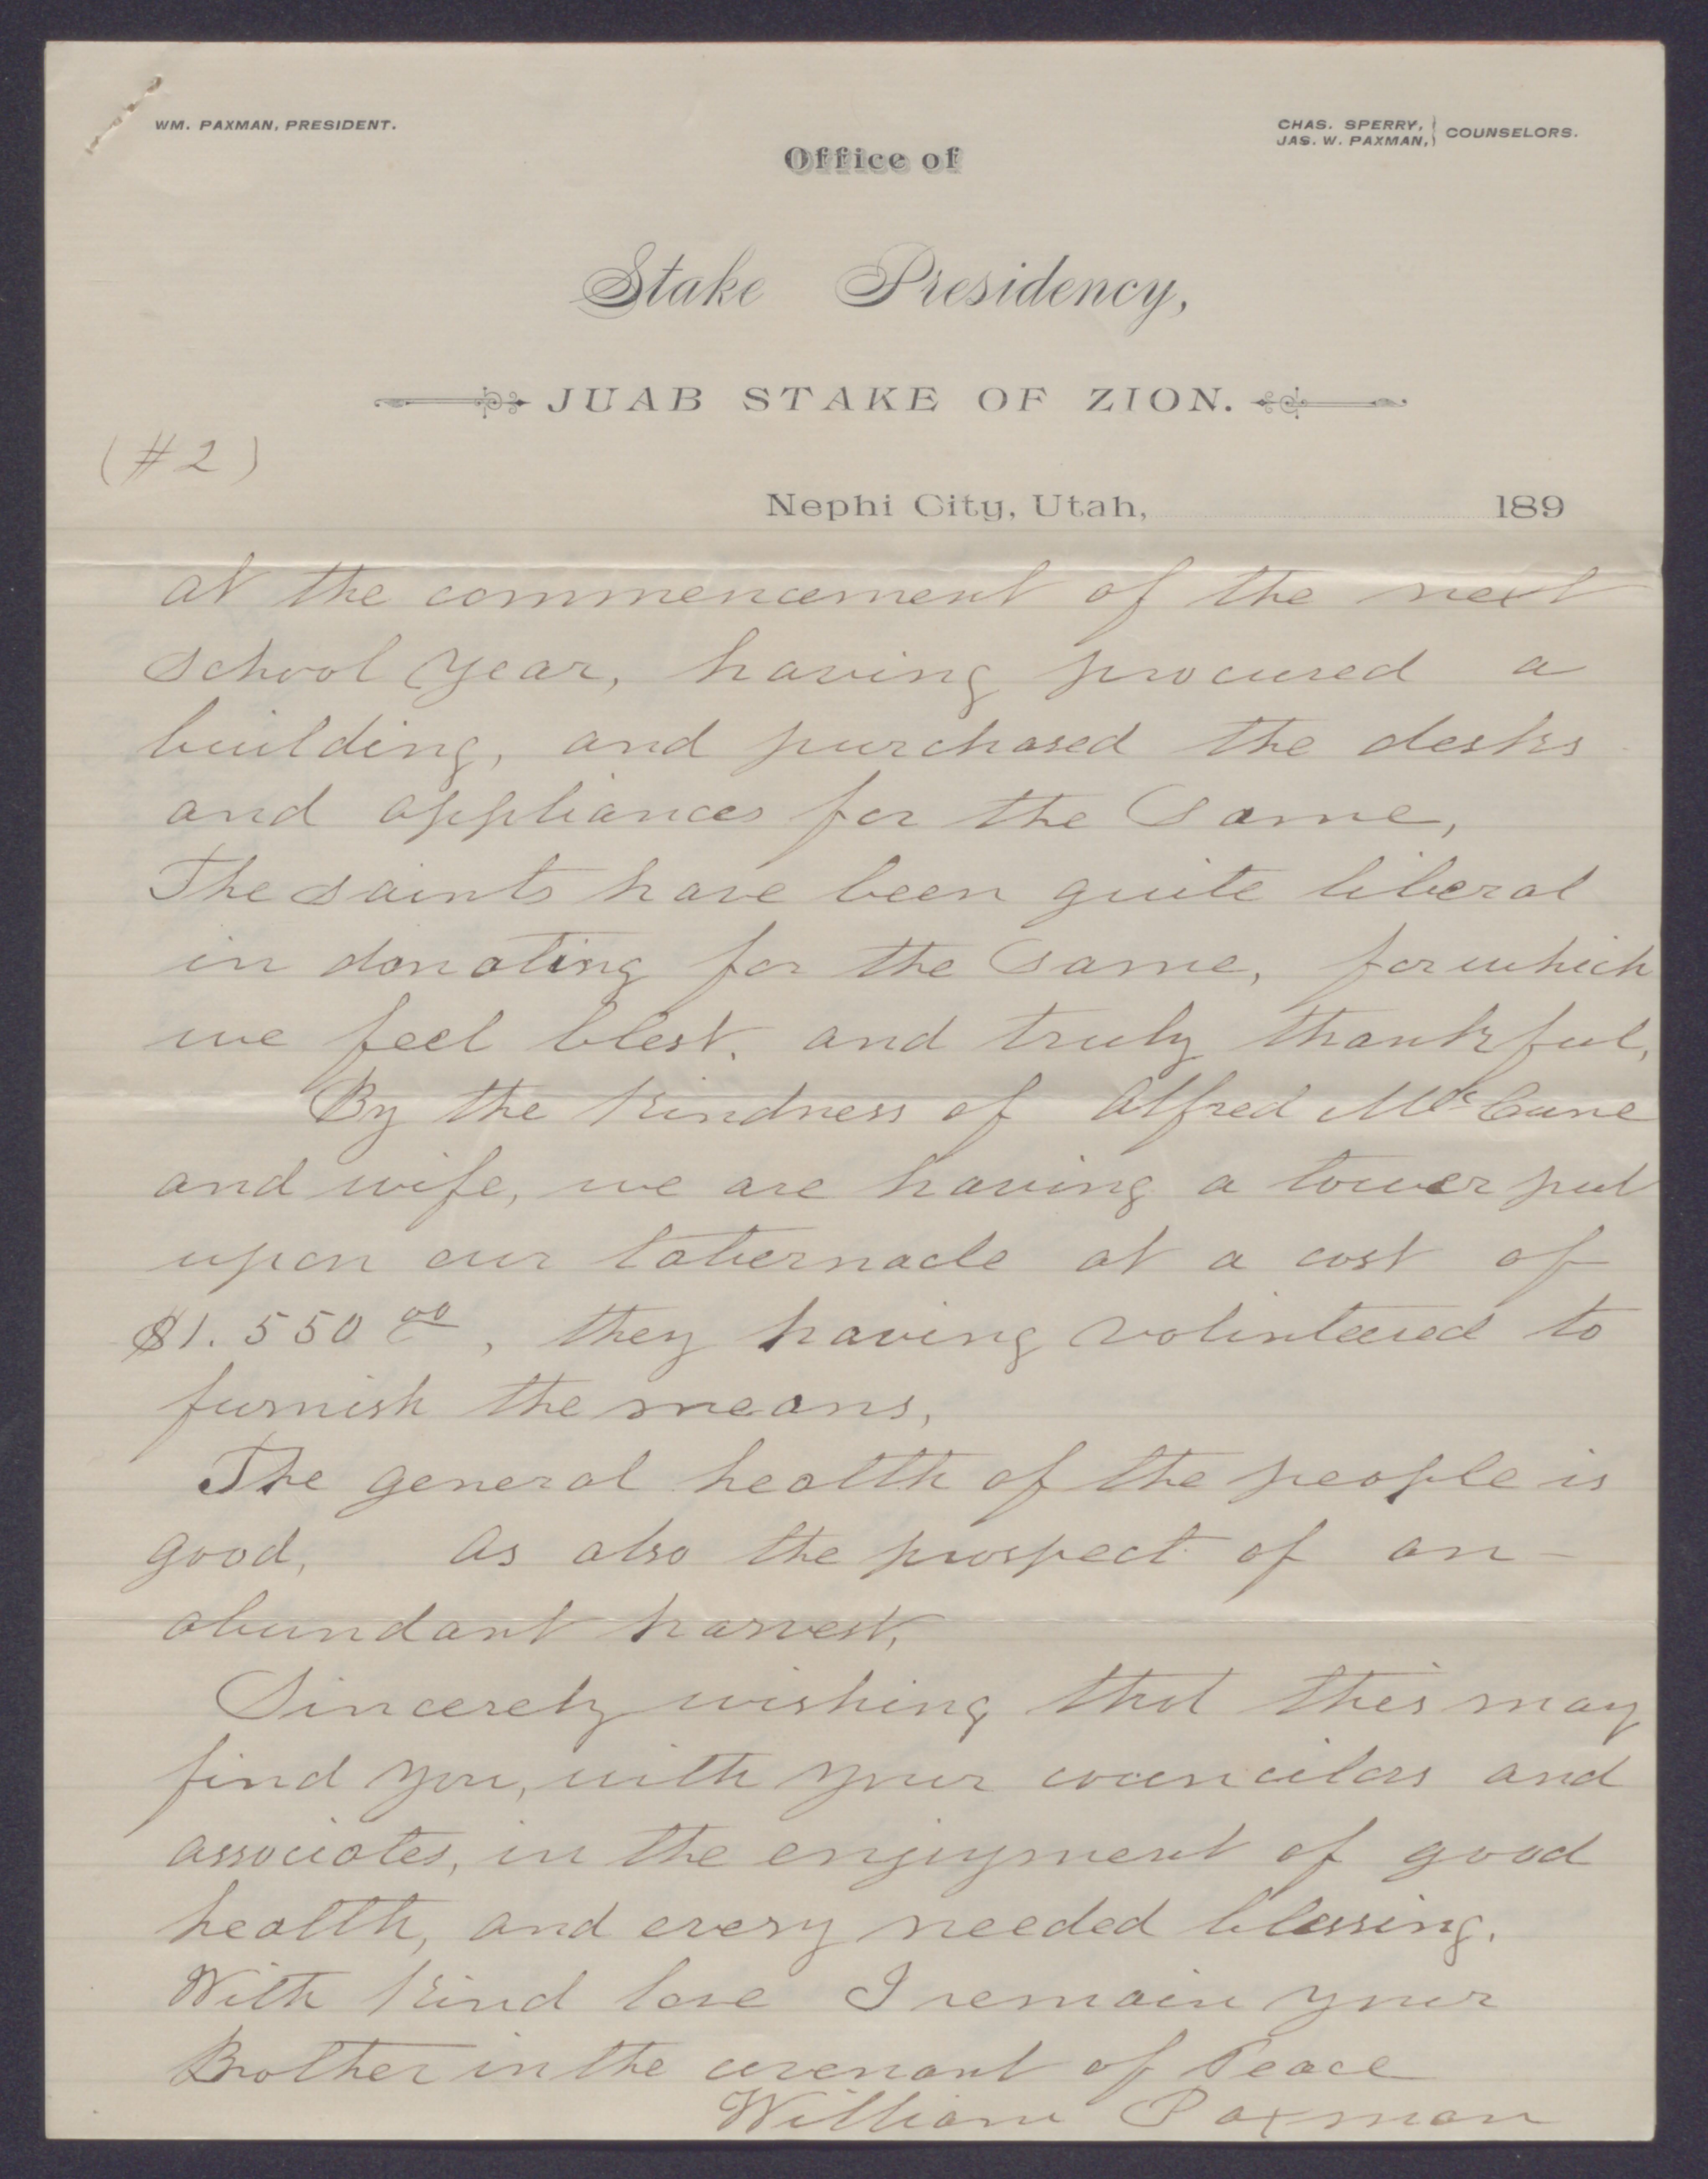 WM. PAXMAN, PRESIDENT.
CHAS. SPERRY,
JAS. W. PAXMAN, } COUNSELORS.
Office of
Stake Presidency,
JUAB STAKE OF ZION.
(#2)
Nephi City, Utah, 189
at the commencement of the next
school year, having procured a
building, and purchased the desks
and appliances for the same,
The saints have been quite liberal
in donating for the same, for which
we feel blest, and truly thankful,
By the kindness of Alfred McCune
and wife, we are having a tower put
upon our tabernacle at a cost of
$1.550 00, they having volinteered to
furnish the means,
The general health of the people is
good, as also the prospect of an
abundant harvest,
Sincerely wishing that this may
find you, with your councilors and
associates, in the enjoyment of good
health, and every needed blessing.
With kind love I remain your
Brother in the covenant of Peace
William Paxman